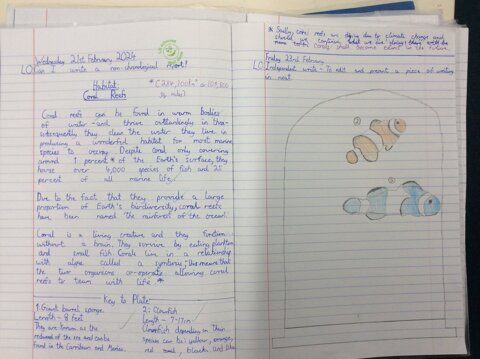 Wednesday 21st February, 2024
LO: Can I write a non-chronological report?
Habitat:
Coral Reefs
Coral reefs can be found in warm bodies
of water and thrive outstandingly in them
subsequently they clean the water they live in
producing a wonderful habitat for most marine
species to occupy. Despite coral only covering
around 1 percent * of the Earth's surface, they
house over 4,000 species of fish and 25
percent of all marine life.
Due to the fact that they provide a large
proportion of Earth's biodiversity, coral reefs
have been named 'the rainforest of the ocean'.
Coral is a living creature and they function
without a brain. They survive by eating plankton
and small fish. Corals live in a relationship
with algae called a symbiosis; this means that
the two organisms co-operate allowing coral
reefs to team with life *
Key to Plate
1: Giant barrel sponge
Length - 8 feet
They are known as the
redwood of the sea and can be
found in the Carribean and Mexico.
2: Clownfish
Length - 7-17cm
Clownfish depending on their
species can be yellow, orange,
red, maroon, black and
* Sadly, coral reefs are dying due to climate change and
should we continue what we are doing
Friday 23rd February
LO: Independent write - To edit and present a piece of writing
in neat
2
1